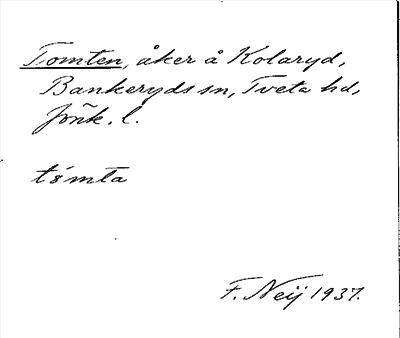 Tomten, åker å Kolaryd,
Bankeryds sn, Tveta hd,
Jönk. l.
tómta
F. Neij 1937.